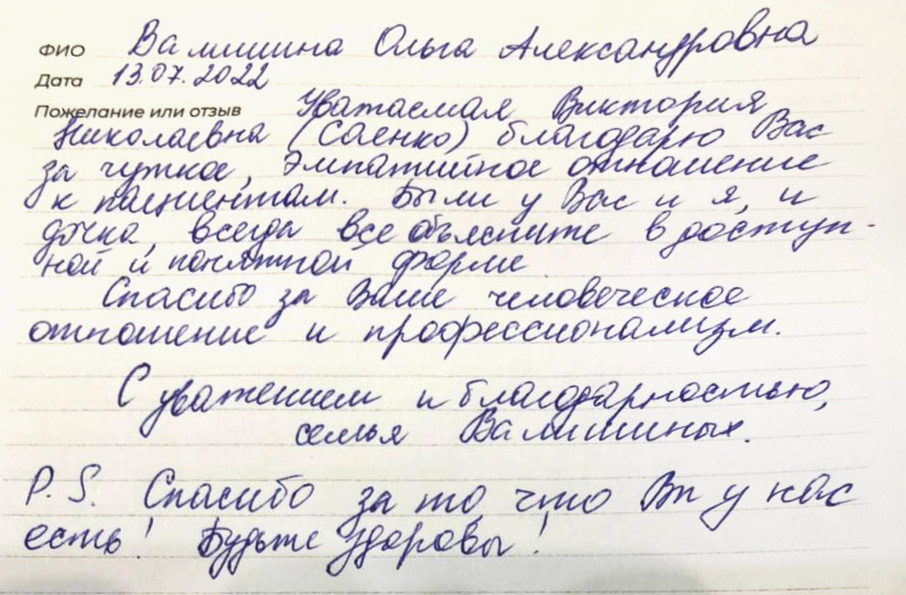 ФИО Валишина Ольга Александровна
Дата 13.07.2022
Пожелание или отзыв Уважаемая Виктория
Николаевна (Саенко) благодарю Вас
за чуткое, эмпатийное отношение
к пациентам. Были у Вас и я, и
дочка, всегда все объясните в доступ-
ной и понятной форме
Спасибо за Ваше человеческое
отношение и профессионализм.
С уважением и благодарностью,
семья Валишиных.
P.S. Спасибо за то, что Вы у нас
есть! Будьте здоровы!